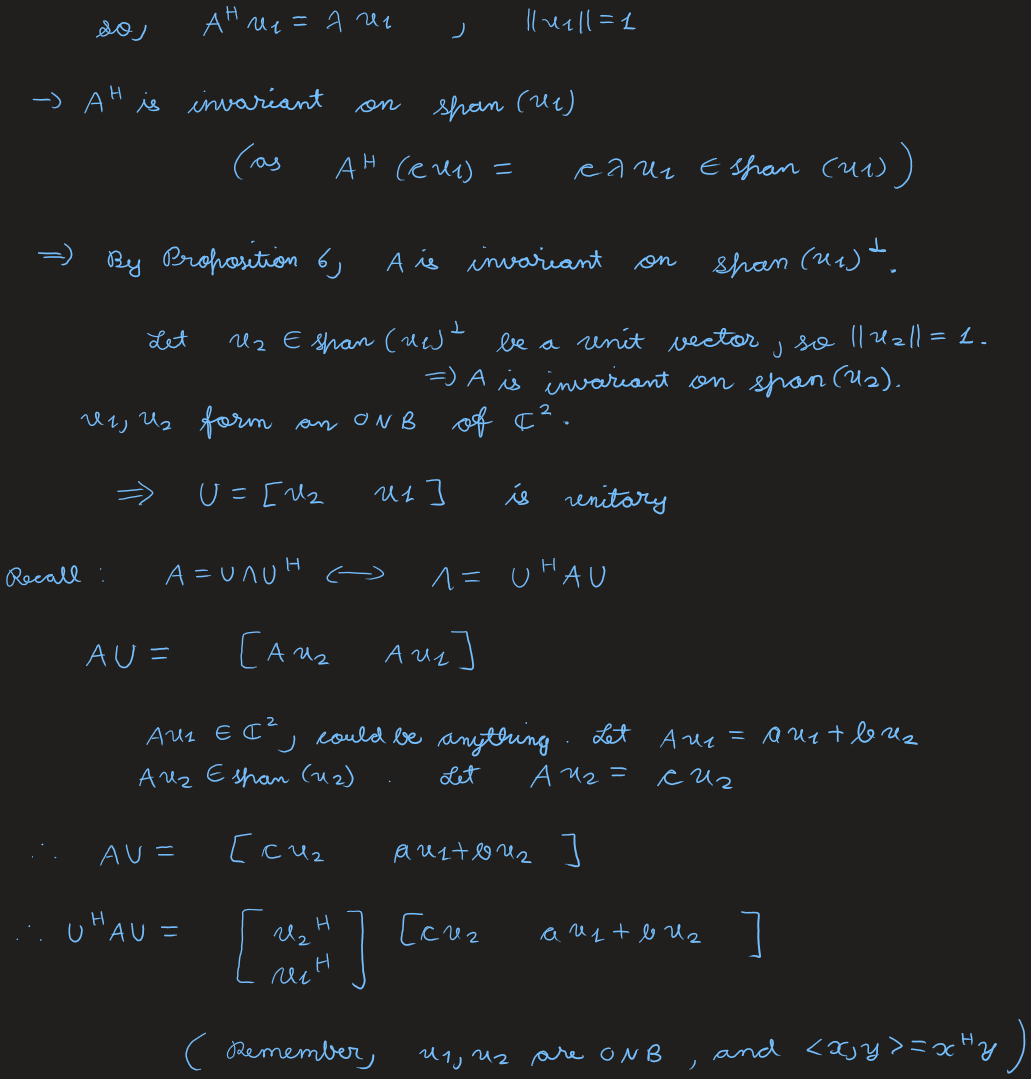 so, Aᴴ u₁ = λ u₁ , ||u₁|| = 1
→ Aᴴ is invariant on span (u₁)
(as Aᴴ (c u₁) = c λ u₁ ∈ span (u₁))
⇒ By Proposition 6, A is invariant on span (u₁)^⊥.
Let u₂ ∈ span (u₁)^⊥ be a unit vector, so ||u₂|| = 1.
⇒ A is invariant on span (u₂).
u₁, u₂ form an ONB of ℂ².
⇒ U = [u₂ u₁] is unitary
Recall : A = UΛUᴴ ⟷ Λ = UᴴAU
AU = [Au₂ Au₁]
Au₁ ∈ ℂ², could be anything. Let Au₁ = au₁ + bu₂
Au₂ ∈ span (u₂) . Let Au₂ = cu₂
∴ AU = [cu₂ au₁+bu₂]
∴ UᴴAU = [u₂ᴴ u₁ᴴ] [cu₂ au₁+bu₂]
(Remember, u₁, u₂ are ONB, and <x,y> = xᴴy)